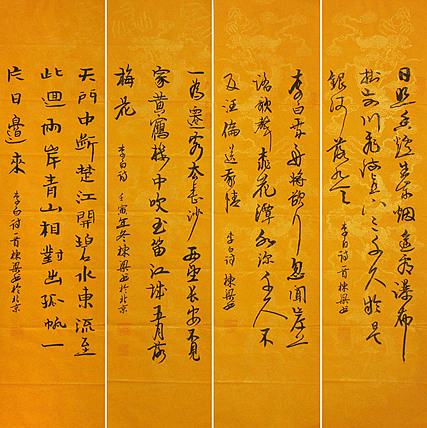 日照香炉生紫烟遥看瀑布
挂前川飛流直下三千尺疑是
銀河落九天 李白诗首栋梁书
李白乘舟将欲行忽闻岸上
踏歌聲桃花潭水深千尺不
及汪倫送我情 李白诗 栋梁书
一為遷客去長沙西望長安不見
家黄鶴樓中吹玉笛江城五月落
梅花 李白诗 壬寅年冬栋梁书於北京
天門中断楚江開碧水東流至
此迴兩岸青山相對出孤帆一
片日邊來 李白诗首栋梁书於北京